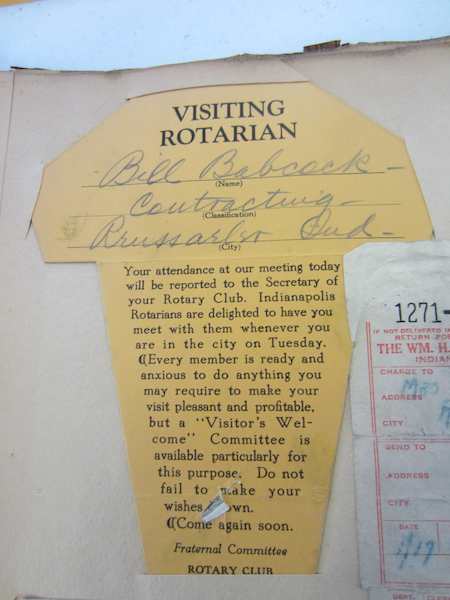 VISITING
ROTARIAN
Bill Babcock -
(Name)
Contracting -
(Classification)
Ind -
(City)
Your attendance at our meeting today
will be reported to the Secretary of
your Rotary Club. Indianapolis
Rotarians are delighted to have you
meet with them whenever you
are in the city on Tuesday.
⁋Every member is ready and
anxious to do anything you
may require to make your
visit pleasant and profitable,
but a "Visitor's Wel-
come" Committee is
available particularly for
this purpose. Do not
fail to make your
wishes known.
⁋Come again soon.
Fraternal Committee
ROTARY CLUB
1271-
IF NOT DELIVERED
RETURN
THE WM. H.
CHARGE TO
ADDRESS
CITY
SEND TO
ADDRESS
CITY
DATE